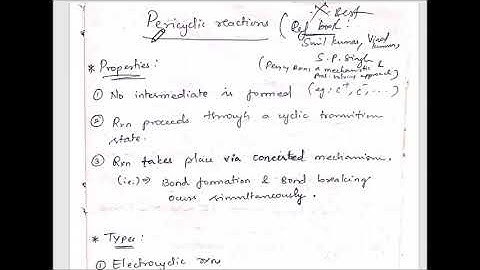 Pericyclic reactions (Ref book:
Best
Sunil kumar, Vinod kumar,
S.P. Singh
(Pericy Rxn: a mechanistic &
Prob. solving approach)
* Properties:
① No intermediate is formed (eg: c⁺, c⁻, ...)
② Rxn proceeds through a cyclic transition
state.
③ Rxn takes place via concerted mechanism.
(i.e.) ⇒ Bond formation & Bond breaking
occurs simultaneously.
* Types:
① Electrocyclic rxn